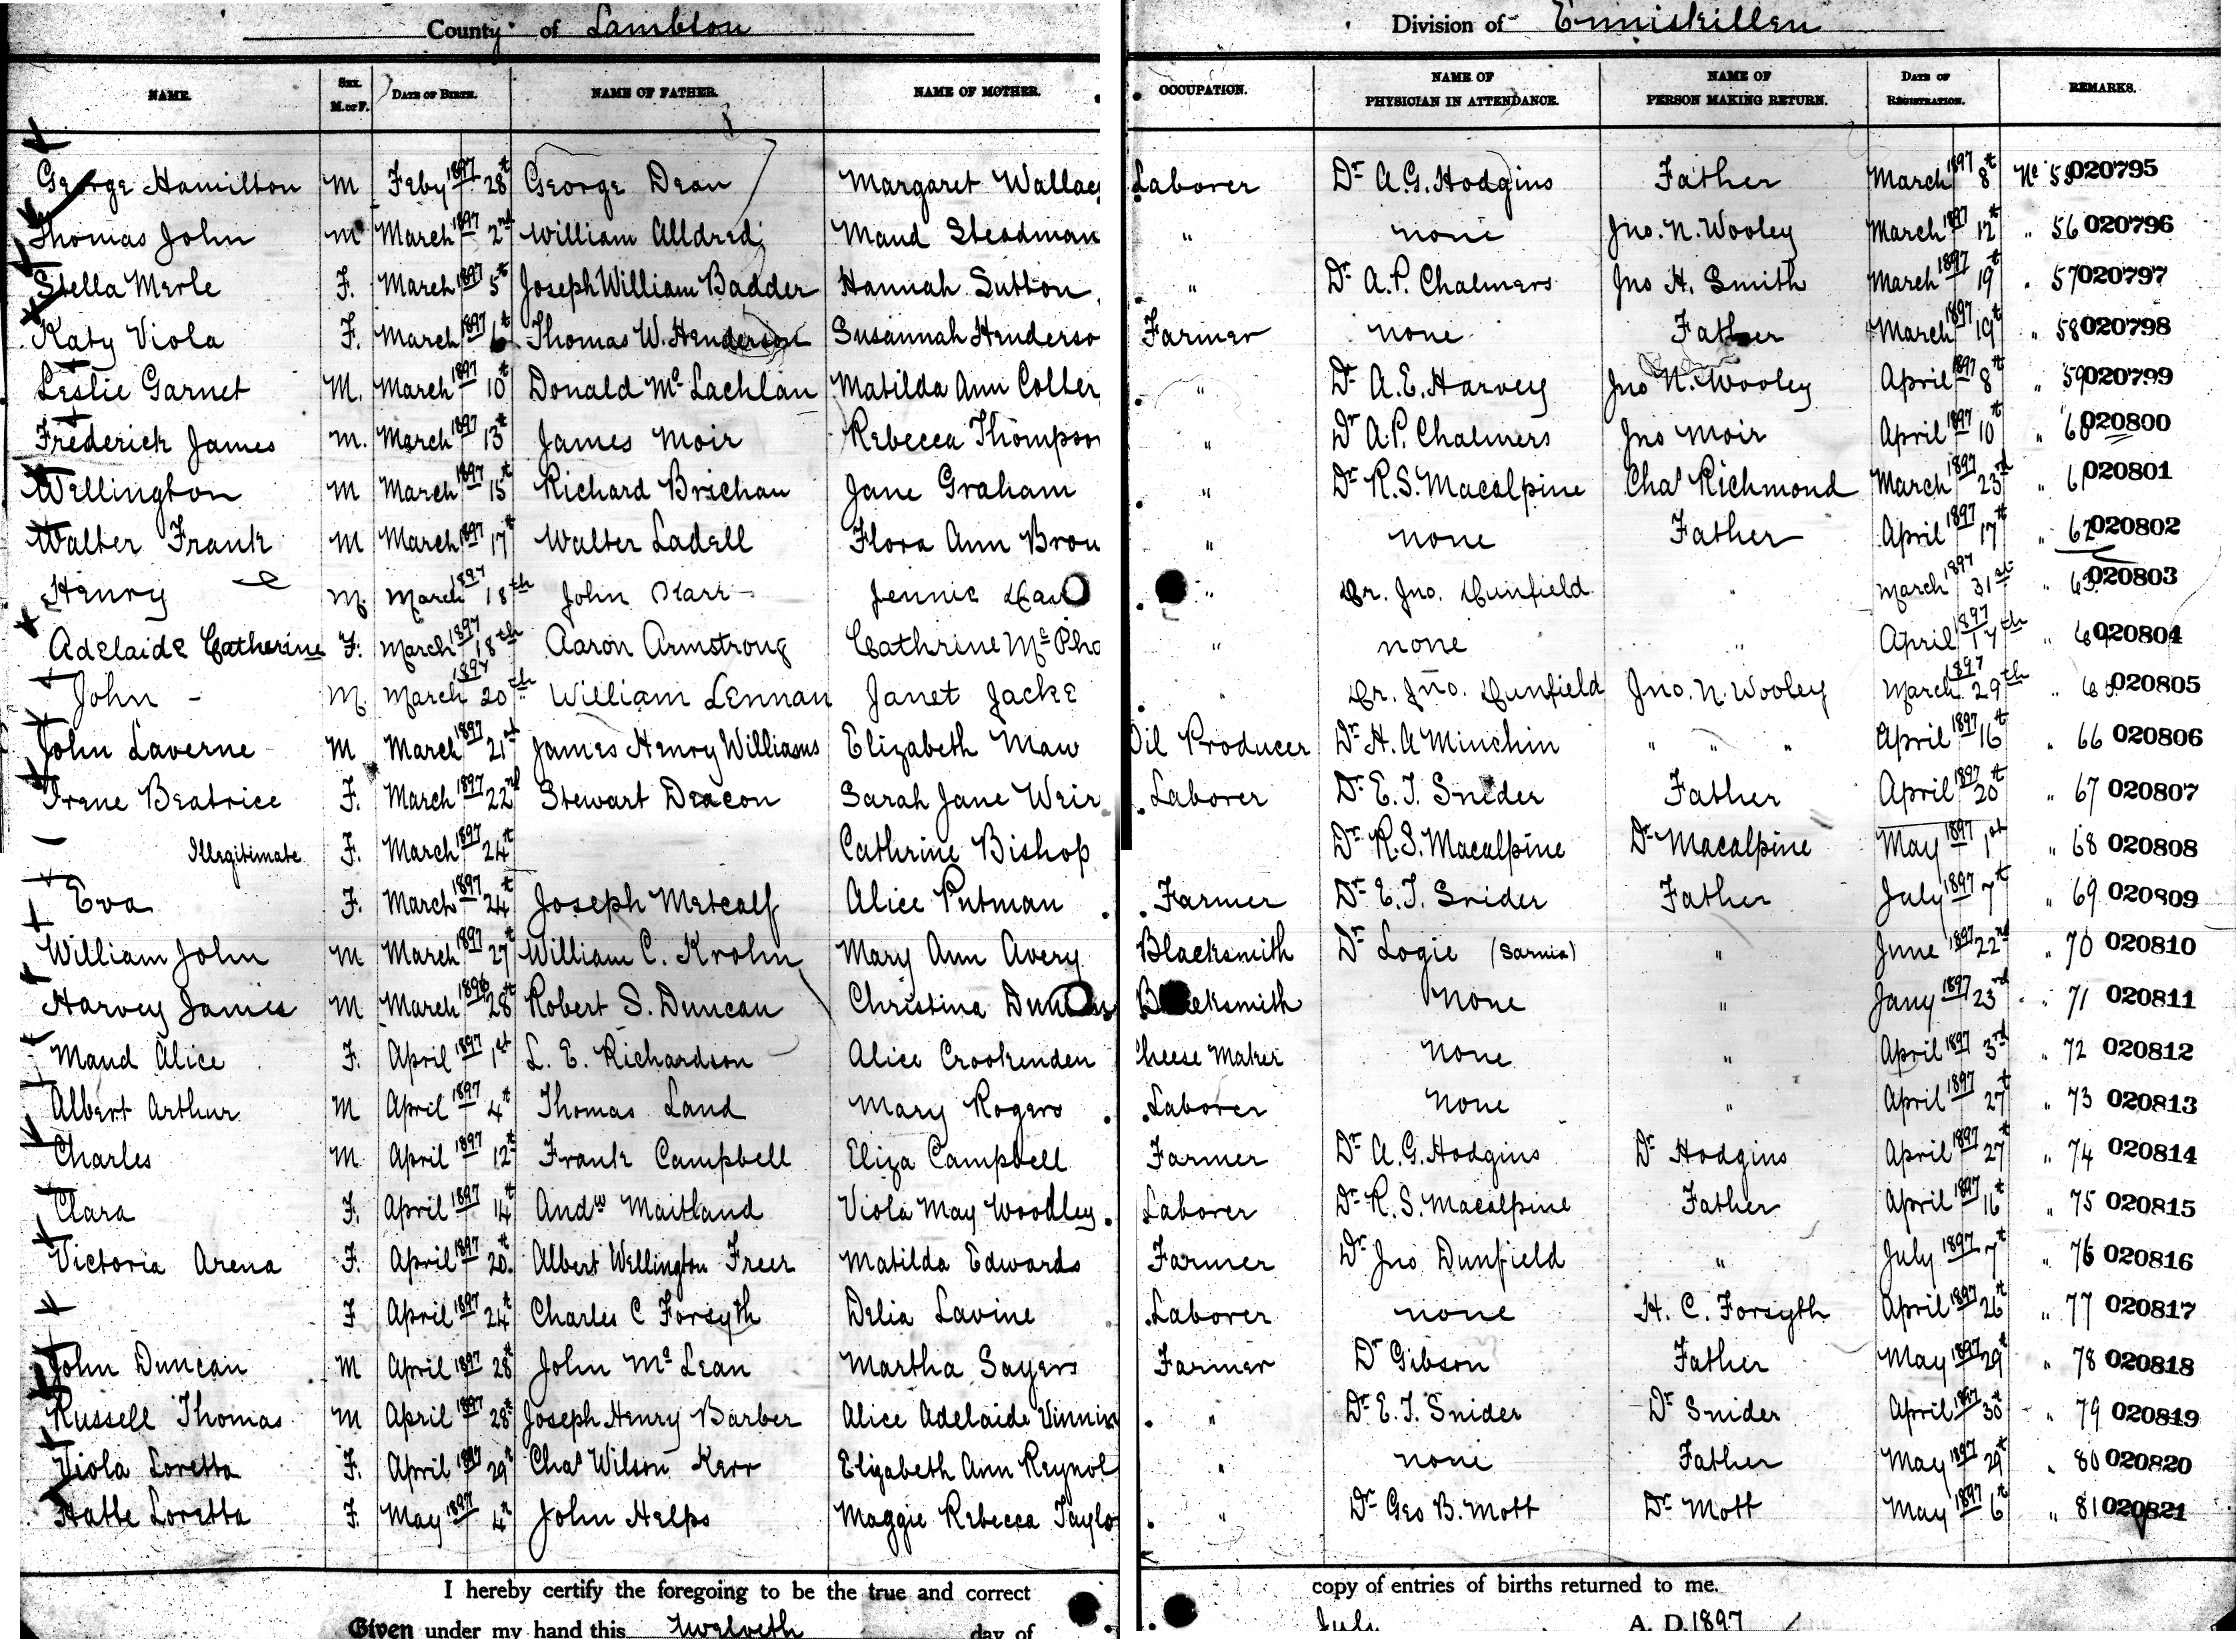 County of Lambton Division of Enniskillen
NAME. SEX. M. or F. DATE OF BIRTH. NAME OF FATHER. NAME OF MOTHER. OCCUPATION. NAME OF PHYSICIAN IN ATTENDANCE. NAME OF PERSON MAKING RETURN. DATE OF REGISTRATION. REMARKS.
George Hamilton M Feby 1897 28t George Dean Margaret Wallac Laborer Dr A. G. Hodgins Father March 1897 8t No 55 020795
Thomas John M March 1897 2nd William Alldred Maud Steadman " none Jno. N. Wooley March 1897 12t " 56 020796
Stella Merle F. March 1897 5t Joseph William Badder Hannah Sutton " Dr A. P. Chalmers Jno H. Smith March 1897 19t " 57 020797
Katy Viola F. March 1897 6t Thomas W. Henderson Susannah Henderso Farmer none Father March 1897 19t " 58 020798
Leslie Garnet M. March 1897 10t Donald Mc Lachlan Matilda Ann Colter " Dr A. E. Harvey Jno N. Wooley April 1897 8t " 59 020799
Frederick James M. March 1897 13t James Moir Rebecca Thompson " Dr A. P. Chalmers Jno Moir April 1897 10t " 60 020800
Wellington M March 1897 15t Richard Brichan Jane Graham " Dr R. S. Macalpine Chas Richmond March 1897 23rd " 61 020801
Walter Frank M March 1897 17t Walter Ladell Flora Ann Brow " none Father April 1897 17t " 62 020802
Henry M. March 1897 18th John Karr Jennie " Dr. Jno. Dunfield " March 1897 31st " 63 020803
Adelaide Catherine F. March 1897 18th Aaron Armstrong Cathrine Mc Pha " none " April 1897 17th " 64 020804
John M. March 1897 20th William Lennan Janet Jacke " Dr. Jno. Dunfield Jno. N. Wooley March 1897 29th " 65 020805
John Laverne M March 1897 21st James Henry Williams Elizabeth Maw Oil Producer Dr H. A Minchin " " " April 1897 16t " 66 020806
Irene Beatrice F. March 1897 22nd Stewart Deacon Sarah Jane Weir Laborer Dr E. T. Snider Father April 1897 20t " 67 020807
Illegitimate F. March 1897 24t Cathrine Bishop Dr R. S. Macalpine Dr Macalpine May 1897 1st " 68 020808
Eva F. March 1897 24t Joseph Metcalf Alice Putman Farmer Dr E. T. Snider Father July 1897 7t " 69 020809
William John M March 1897 27t William C. Krohn Mary Ann Avery Blacksmith Dr Logie (Sarnia) " June 1897 22nd " 70 020810
Harvey James M March 1896 28t Robert S. Duncan Christina Duncan Blacksmith None " Jany 1897 23rd " 71 020811
Maud Alice F. April 1897 1st L. E. Richardson Alice Crookenden Cheese Maker None " April 1897 3rd " 72 020812
Albert Arthur M April 1897 4t Thomas Land Mary Rogers Laborer None " April 1897 27t " 73 020813
Charles M April 1897 12t Frank Campbell Eliza Campbell Farmer Dr A. G. Hodgins Dr Hodgins April 1897 27t " 74 020814
Clara F. April 1897 14t Andw Maitland Viola May Woodley Laborer Dr R. S. Macalpine Father April 1897 16t " 75 020815
Victoria Arena F. April 1897 20t Albert Wellington Freer Matilda Edwards Farmer Dr Jno Dunfield " July 1897 7t " 76 020816
F April 1897 24t Charles C Forsyth Delia Lavine Laborer none H. C. Forsyth April 1897 26t " 77 020817
John Duncan M April 1897 28t John Mc Lean Martha Sayers Farmer Dr Gibson Father May 1897 29t " 78 020818
Russell Thomas M April 1897 28t Joseph Henry Barber Alice Adelaide Vinnin " Dr E. T. Snider Dr Snider April 1897 30t " 79 020819
Viola Loretta F. April 1897 29t Chas Wilson Kerr Elizabeth Ann Reynol " none Father May 1897 29t " 80 020820
Hatte Loretta F. May 1897 4t John Helps Maggie Rebecca Taylo " Dr Geo B. Mott Dr Mott May 1897 6t " 81 020821
I hereby certify the foregoing to be the true and correct copy of entries of births returned to me.
Given under my hand this twelveth day of July A. D. 1897